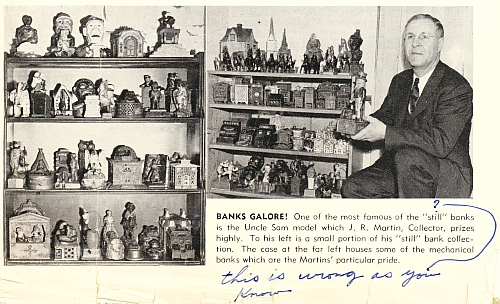 BANKS GALORE! One of the most famous of the "still" banks
is the Uncle Sam model which J. R. Martin, Collector, prizes
highly. To his left is a small portion of his "still" bank collec-
tion. The case at the far left houses some of the mechanical
banks which are the Martins' particular pride.
?
this is wrong as you
know